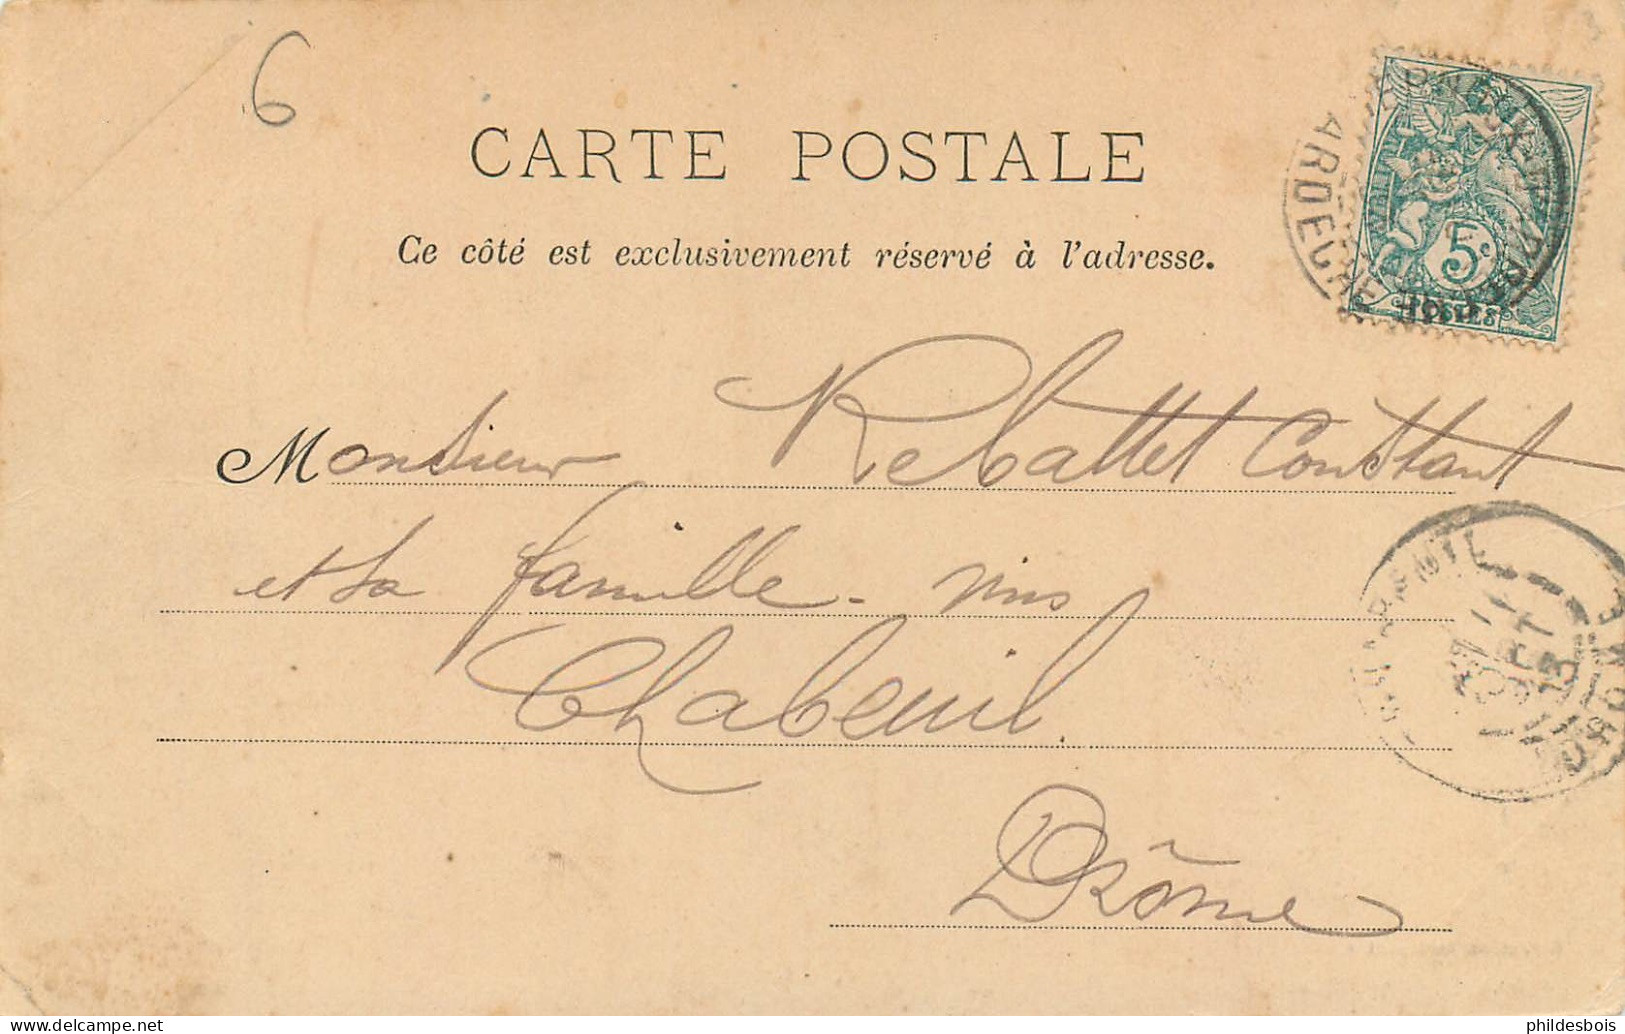 6
CARTE POSTALE
Ce côté est exclusivement réservé à l'adresse.
ARDECHE
5c
POSTES
Monsieur Rebattet Constant
et sa famille - vins
Chabeuil
Drôme
SEPT
DROME
delcampe.net
phildesbois